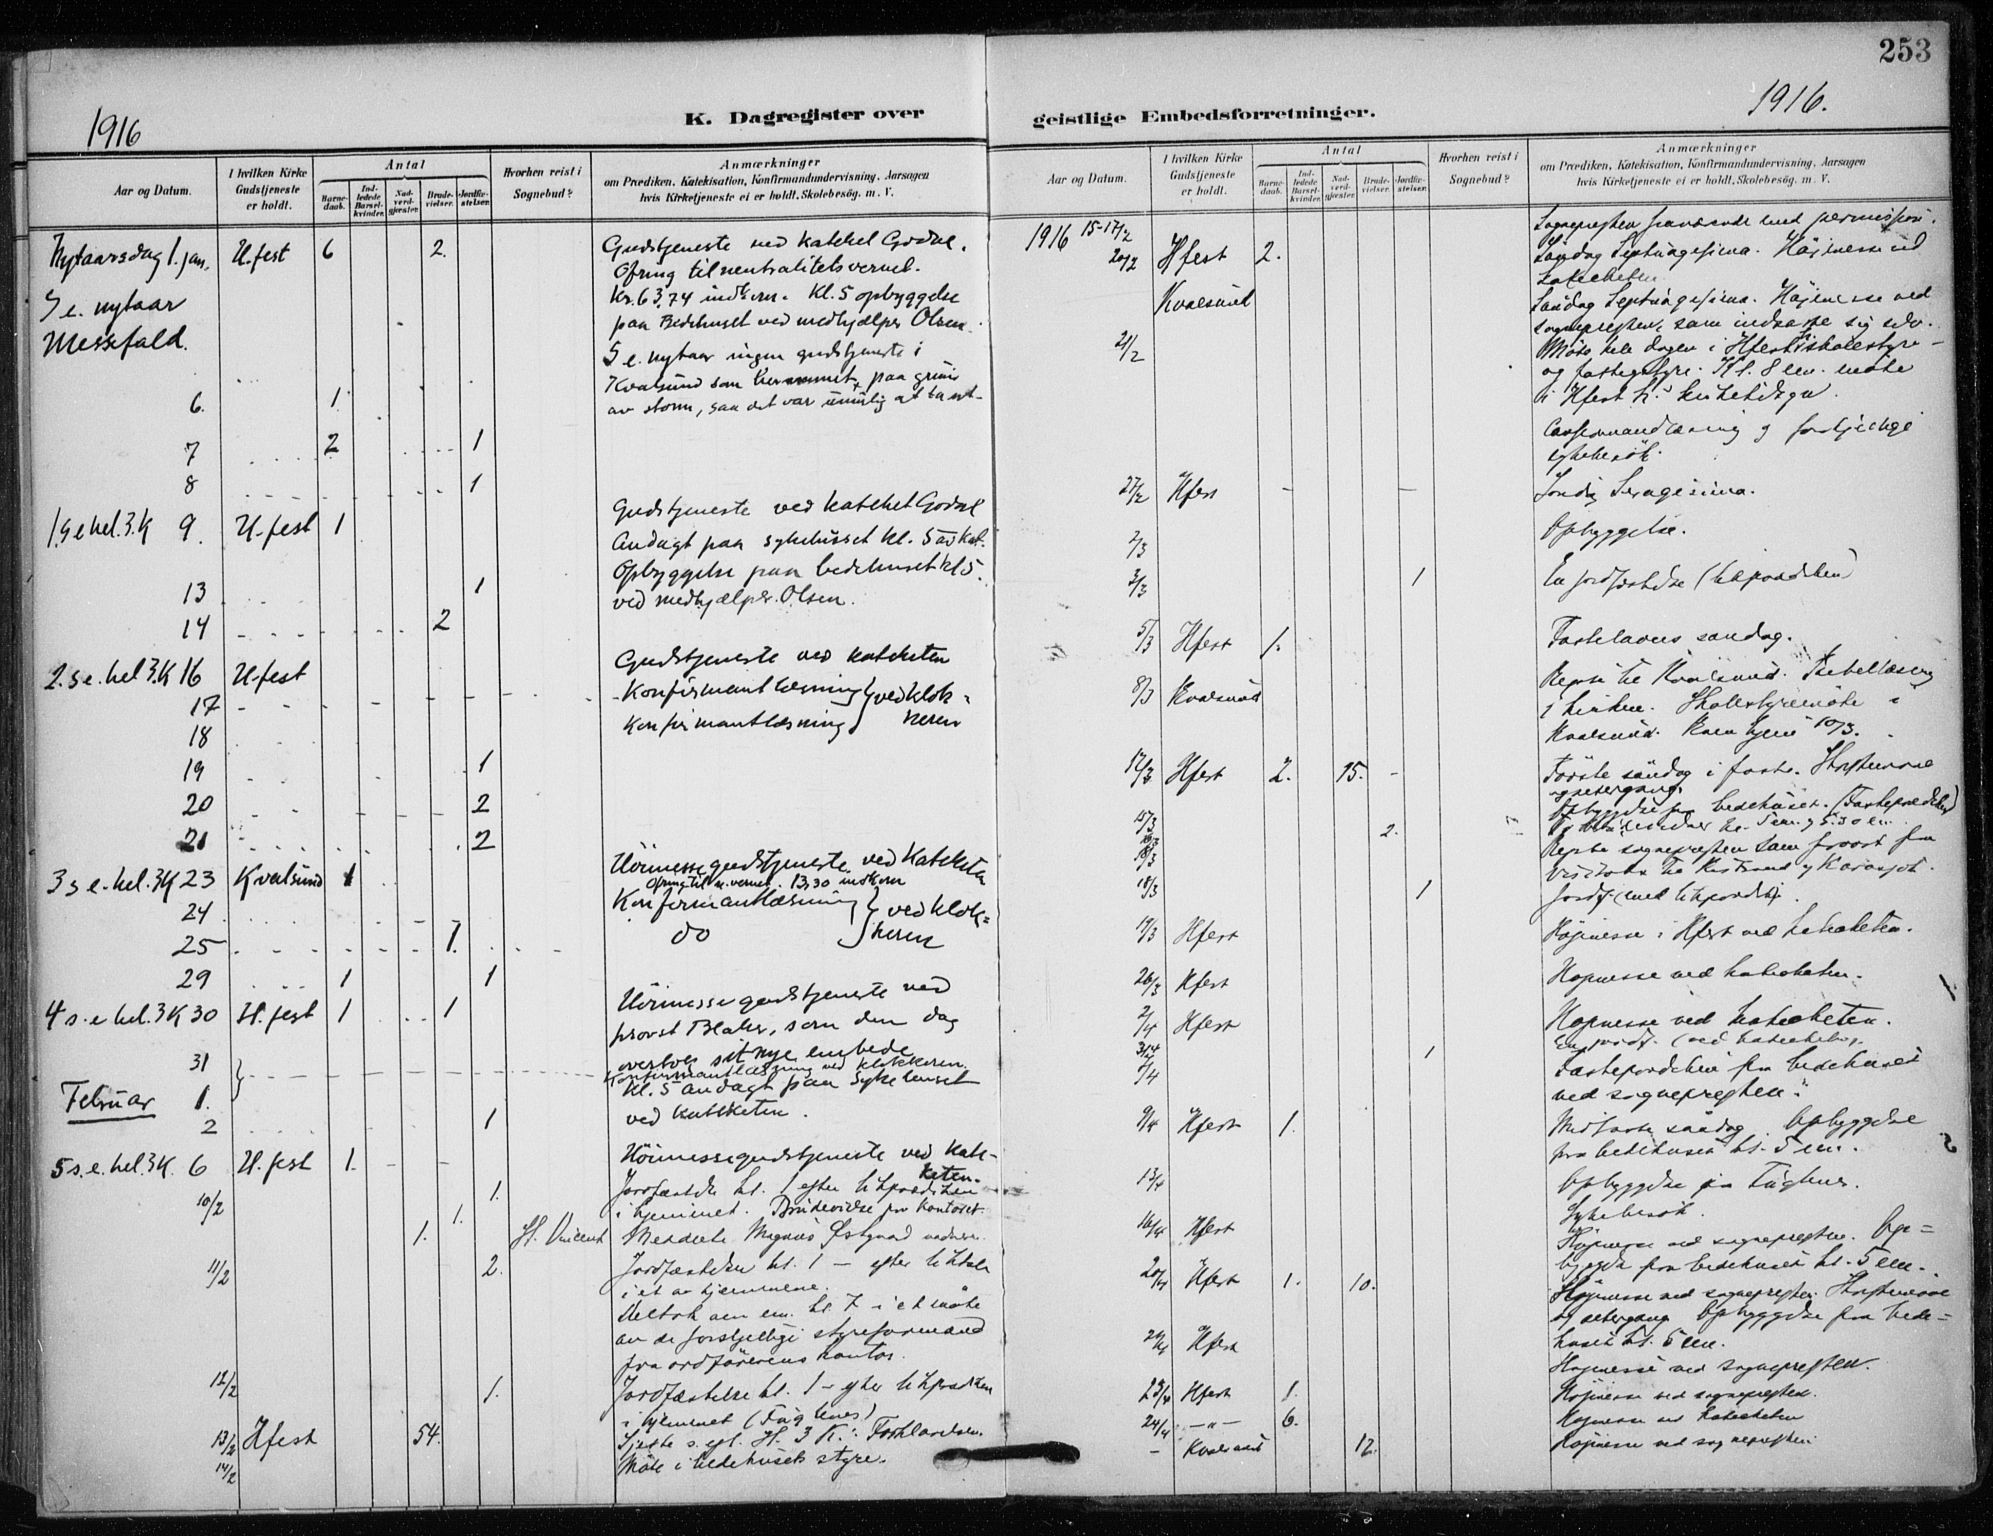 253
1916
1916.
K. Dagregister over
geistlige Embedsforretninger.
Aar og Datum.
I hvilken Kirke Gudstjeneste er holdt.
Antal
Barnedaab.
Indledede Barselkvinder.
Nadverdgjester.
Brudevielser.
Jordfæstelser.
Hvorhen reist i Sognebud?
Anmærkninger
om Prædiken, Katekisation, Konfirmandundervisning, Aarsagen
hvis Kirketjeneste ei er holdt, Skolebesøg, m. V.
Nytaarsdag 1. jan. H.fest 6 2. Gudstjeneste ved katekel Godal.
Ofring til neutralitetsvernet.
S e. nytaar Kr. 63,74 indkom. Kl. 5 opbyggelse
paa Bedehuset ved medhjælper Olsen.
Messefald. S e. nytaar ingen gudstjeneste i
Kvalsund som paa grund
6. 1 av storm, saa det var umulig at
7 2 1
8 1
Gudstjeneste ved katekel Godal
1. S e hel. 3. K 9. H.fest 1 Andagt paa sykehuset kl. 5 av kat.
Opbyggelse paa bedehuset kl 5.
13 1 ved medhjælper Olsen.
14 2
2. s e. hel 3. K 16 H.fest Gudstjeneste ved kateketen
17 Konfirmantlæsning } ved klok-
18 Konfirmantlæsning } keren
19 1
20 2
21 2
3 s e. hel. 3 K 23 Kvalsund 1 Höimessegudstjeneste ved Kateketen
Ofring til n. vernet. 13,30 indkom
24. Konfirmantlæsning } ved klok-
25 1. do } keren
29 1 1
4 s. e hel. 3 K 30 H. fest 1 1 Höimessegudstjeneste ved
provst som den dag
overtok sit nye embede
31 Konfirmantlæsning ved klokkeren.
Februar 1. Kl. 5 andagt paa Sykehuset
2 1 ved kateketen.
5 s. e. hel. 3 K. 6 H. fest 1. Höimessegudstjeneste ved Kate-
keten.
10/2 1. Jordfæstelse kl. 1 efter likprædiken
1. i hjemmet. Brudevielse paa kontoret
1. Meddelte Magnus
11/2 2. Jordfæstelse kl. 1 — efter liktale
i et av hjemmene.
Deltok em. kl. 7 i et møte
av de forskjellige styreformænd
fra ordførerens kontor.
12/2 1. Jordfæstelse kl. 1 — efter likprædiken
i hjemmet (Fuglenes)
13/2 Hfest 54. Sjette s. e. H. 3 K.:
14/2 Møte i bedehusets styre.
Aar og Datum.
I hvilken Kirke Gudstjeneste er holdt.
Antal
Barnedaab.
Indledede Barselkvinder.
Nadverdgjester.
Brudevielser.
Jordfæstelser.
Hvorhen reist i Sognebud?
Anmærkninger
om Prædiken, Katekisation, Konfirmandundervisning, Aarsagen
hvis Kirketjeneste ei er holdt, Skolebesøg, m. V.
1916 15-17/2 Sognepresten fraværende med permission.
20/2 Hfest 2. Søndag Septuagesima. Højmesse ved
kateketen
Kvalsund Søndag Septuagesima. Højmesse ved
sognepresten, som indsatte sig selv.
21/2 Møte hele dagen i Hfest skolestyre -
og fattigstyre. Kl. 8 em. møte
i Hfest
og forskjellige
sykebesøk.
27/2 Hfest - - Søndag Sexagesima.
2/3 Opbyggelse.
3/3 1 En jordfæstelse (likprædiken)
5/3 Hfest 1. Fastelavns søndag.
8/3 Kvalsund Reiste til Kvalsund. Bibellæsning
i kirken. Skolestyremøte i
Kvalsund. Kom hjem 10/3.
12/3 Hfest 2. 15. - Første søndag i faste.
og altergang.
15/3 Opbyggelse paa bedehuset. (Fasteprædiken)
2. kl. 5 em. og 5.30 em.
Reiste sognepresten som provst paa
visitats til Kistrand og Karasjok.
18/3 1 Jordf. (med likprædik).
19/3 Hfest Højmesse i Hfest ved kateketen.
26/3 Hfest Højmesse ved kateketen.
2/4 Hfest Højmesse ved kateketen.
3/4 1 En jordf. (ved kateketen).
/4 Fasteprædiken paa bedehuset
ved sognepresten.
9/4 Hfest 1. Midfaste søndag. Opbyggelse
paa bedehuset kl. 5 em.
13/4 Opbyggelse paa Fuglenes.
Sykebesøk.
16/4 Hfest Højmesse ved sognepresten. Op=
byggelse paa bedehuset kl. 5 em.
20/4 Hfest 1. 10. Højmesse ved sognepresten.
og altergang. Opbyggelse paa bede=
huset kl. 5 em.
Hfest Højmesse ved sognepresten.
23/4 Hfest 1. Højmesse ved sognepresten.
24/4 —"— 6. Højmesse ved kateketen
- Kvalsund 12. Højmesse ved sognepresten